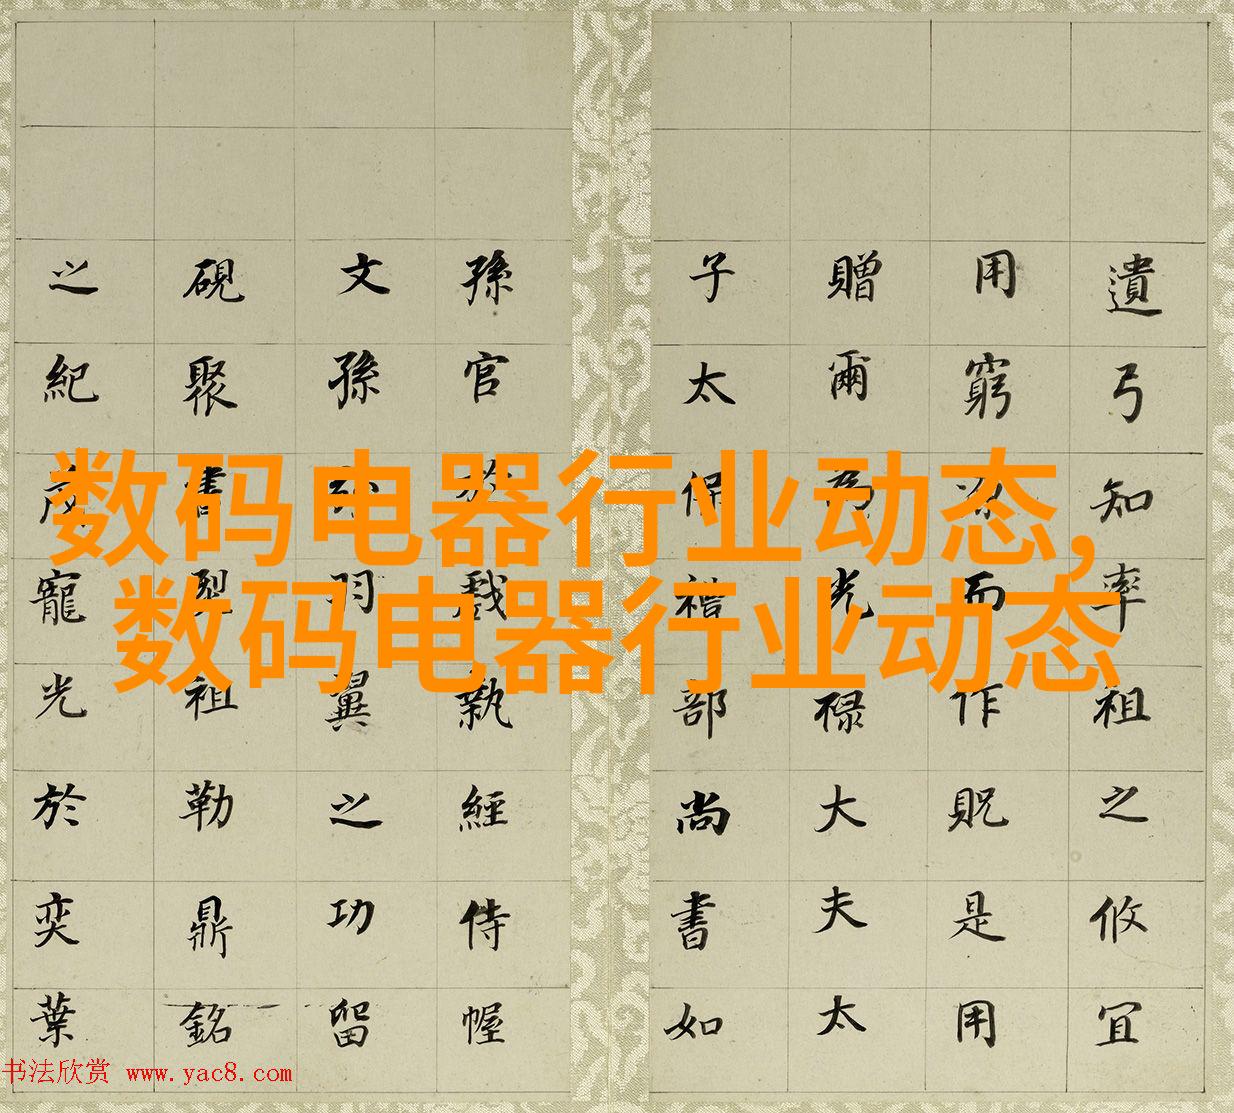 遺弓知率祖之攸宜
用窮而作貺是用
贈爾為光祿大夫太
子太保禮部尚書如
孫官於戲執經侍幄
文孫羽翼之功留
硯聚書祖勒鼎銘
之紀茂寵光於奕葉
数码电器行业动态,
数码电器行业动态
书法欣赏 www.yac8.com